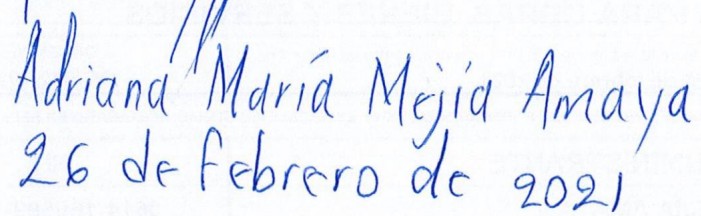 Adriana María Mejía Amaya
26 de febrero de 2021